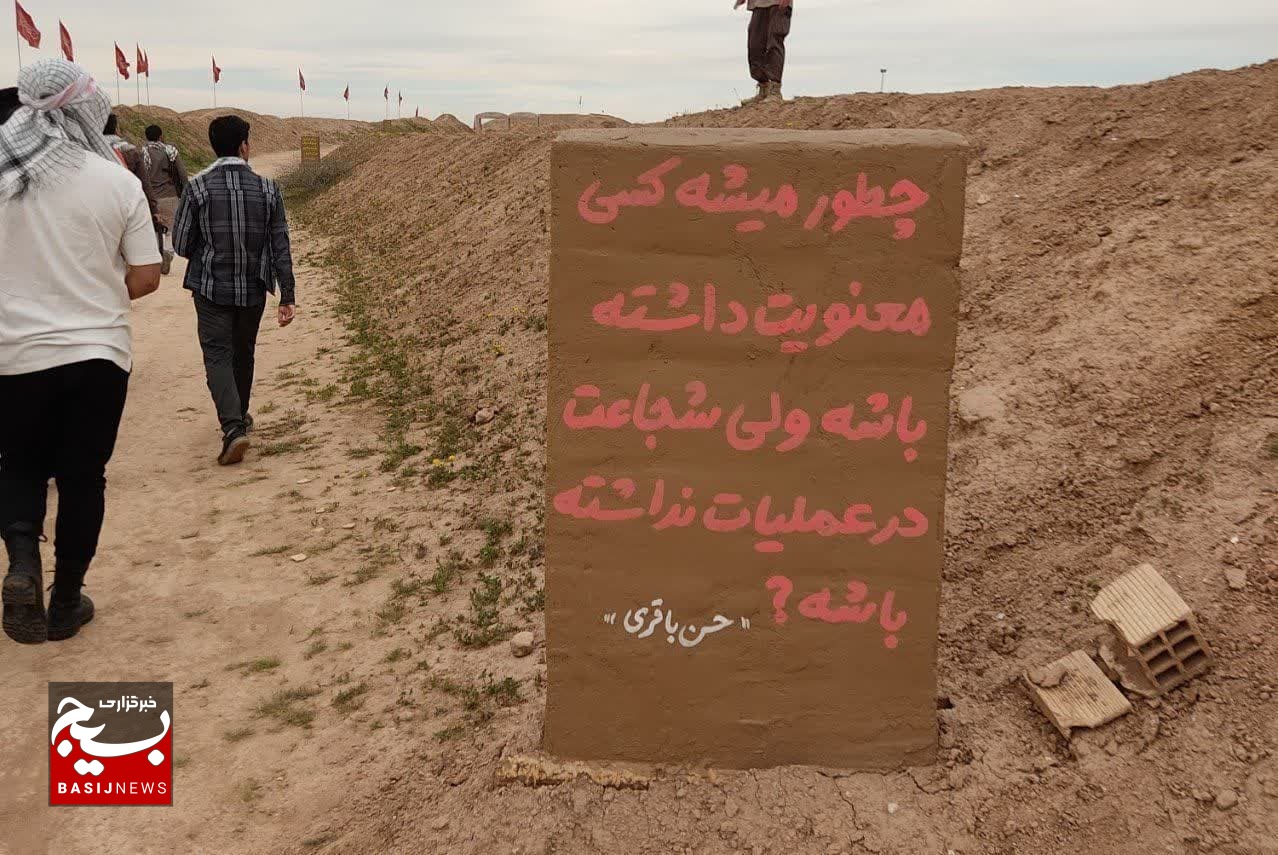 چطور میشه کسی
معنویت داشته
باشه ولی شجاعت
در عملیات نداشته
باشه؟
"حسن باقری"
خبرگزاری
بسیج
BASIJNEWS